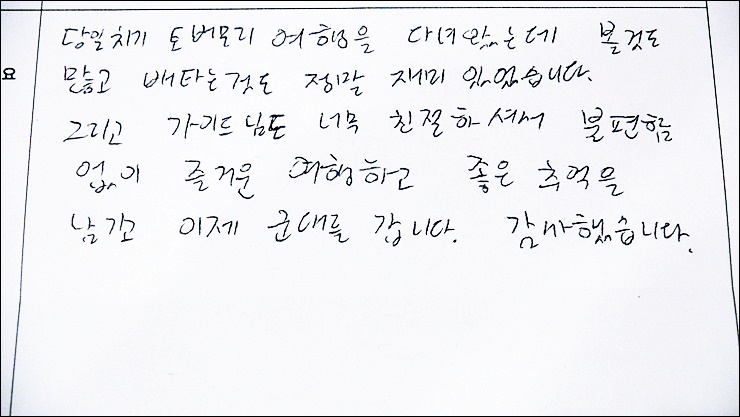 당일치기 토버모리 여행을 다녀왔는데 볼것도
요
많고 배타는것도 정말 재미 있었습니다.
그리고 가이드님도 너무 친절하셔서 불편함
없이 즐거운 여행하고 좋은 추억을
남기고 이제 군대를 갑니다. 감사했습니다.